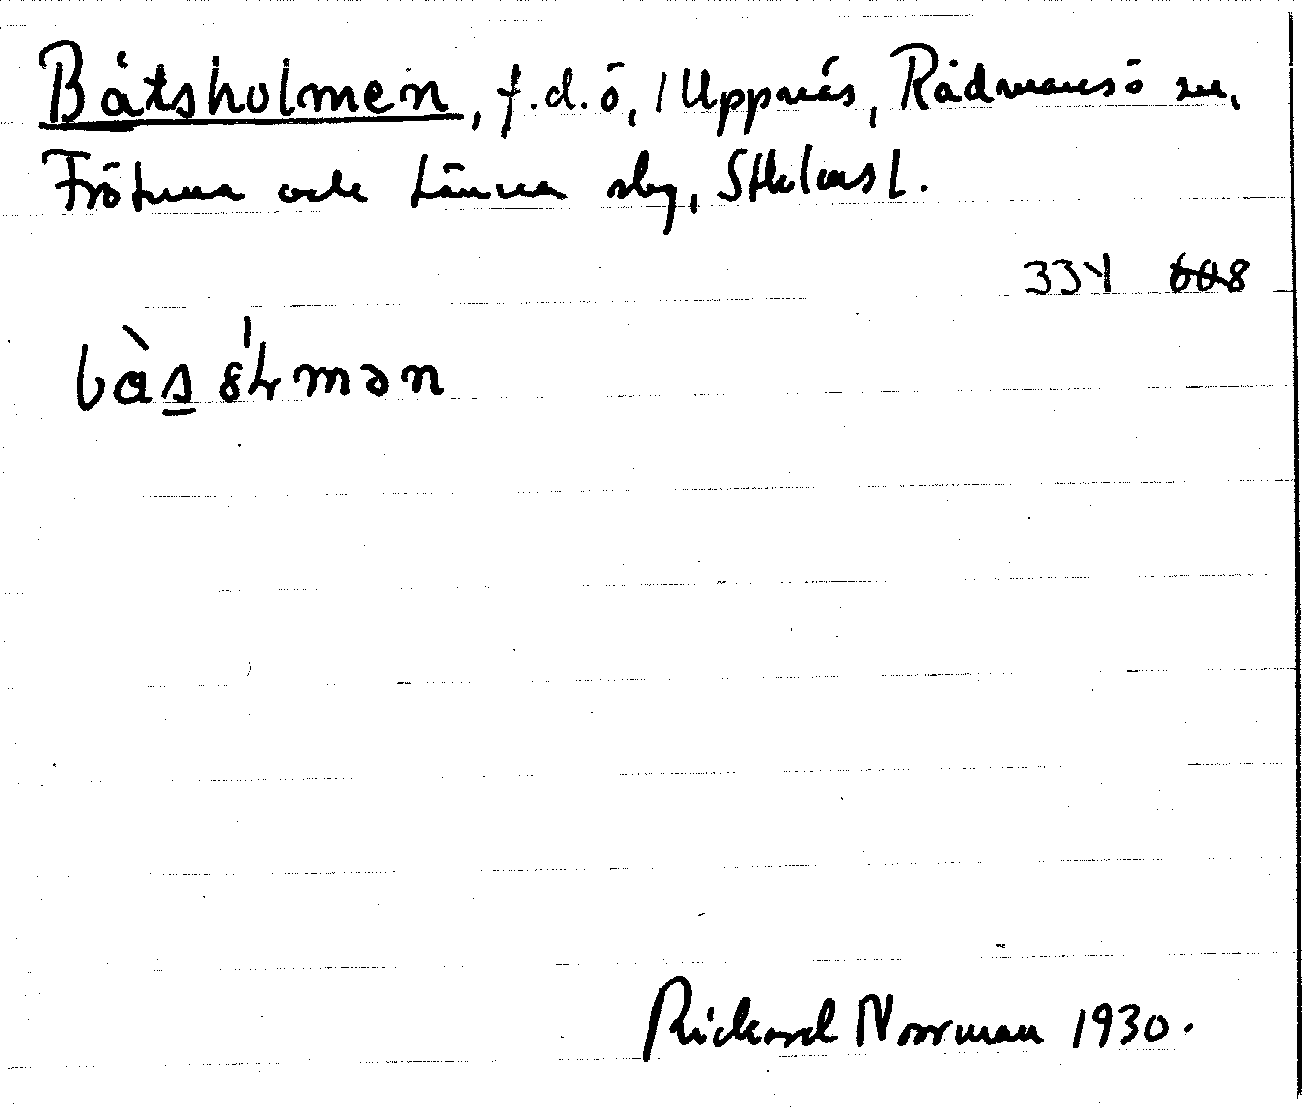 Båtsholmen, f.d. ö, / Uppnäs, Rådmansö sn,
Frötuna och Länna skg, Sthlms l.
334 608
Rickard Norrman 1930.